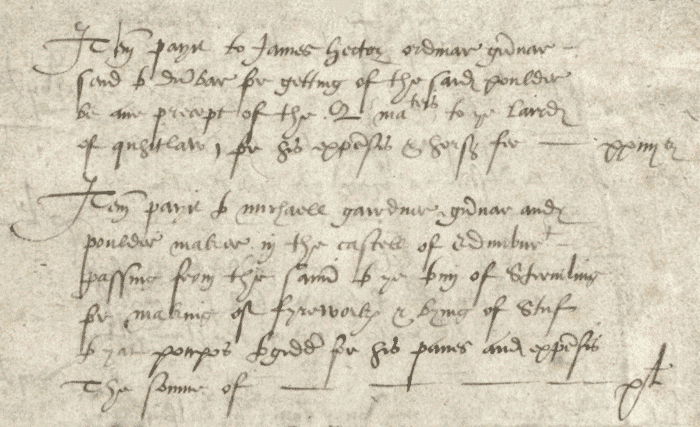 Item payit to James hector ordinar gunnar
send to dunbar for getting of the said poulder
be ane precept of the Q maties to ye Laird
of quhitlaw, for his expensis & horss fee xxiiij s
Item payit to michaell gairdnar gunnar and
poulder maker in the castell of Edinburt
passing from the samin to ye toun of Stirveling
for making of fyrework & bying of Stuf
to yat purpos togidder for his panes and expensis
The soume of xl